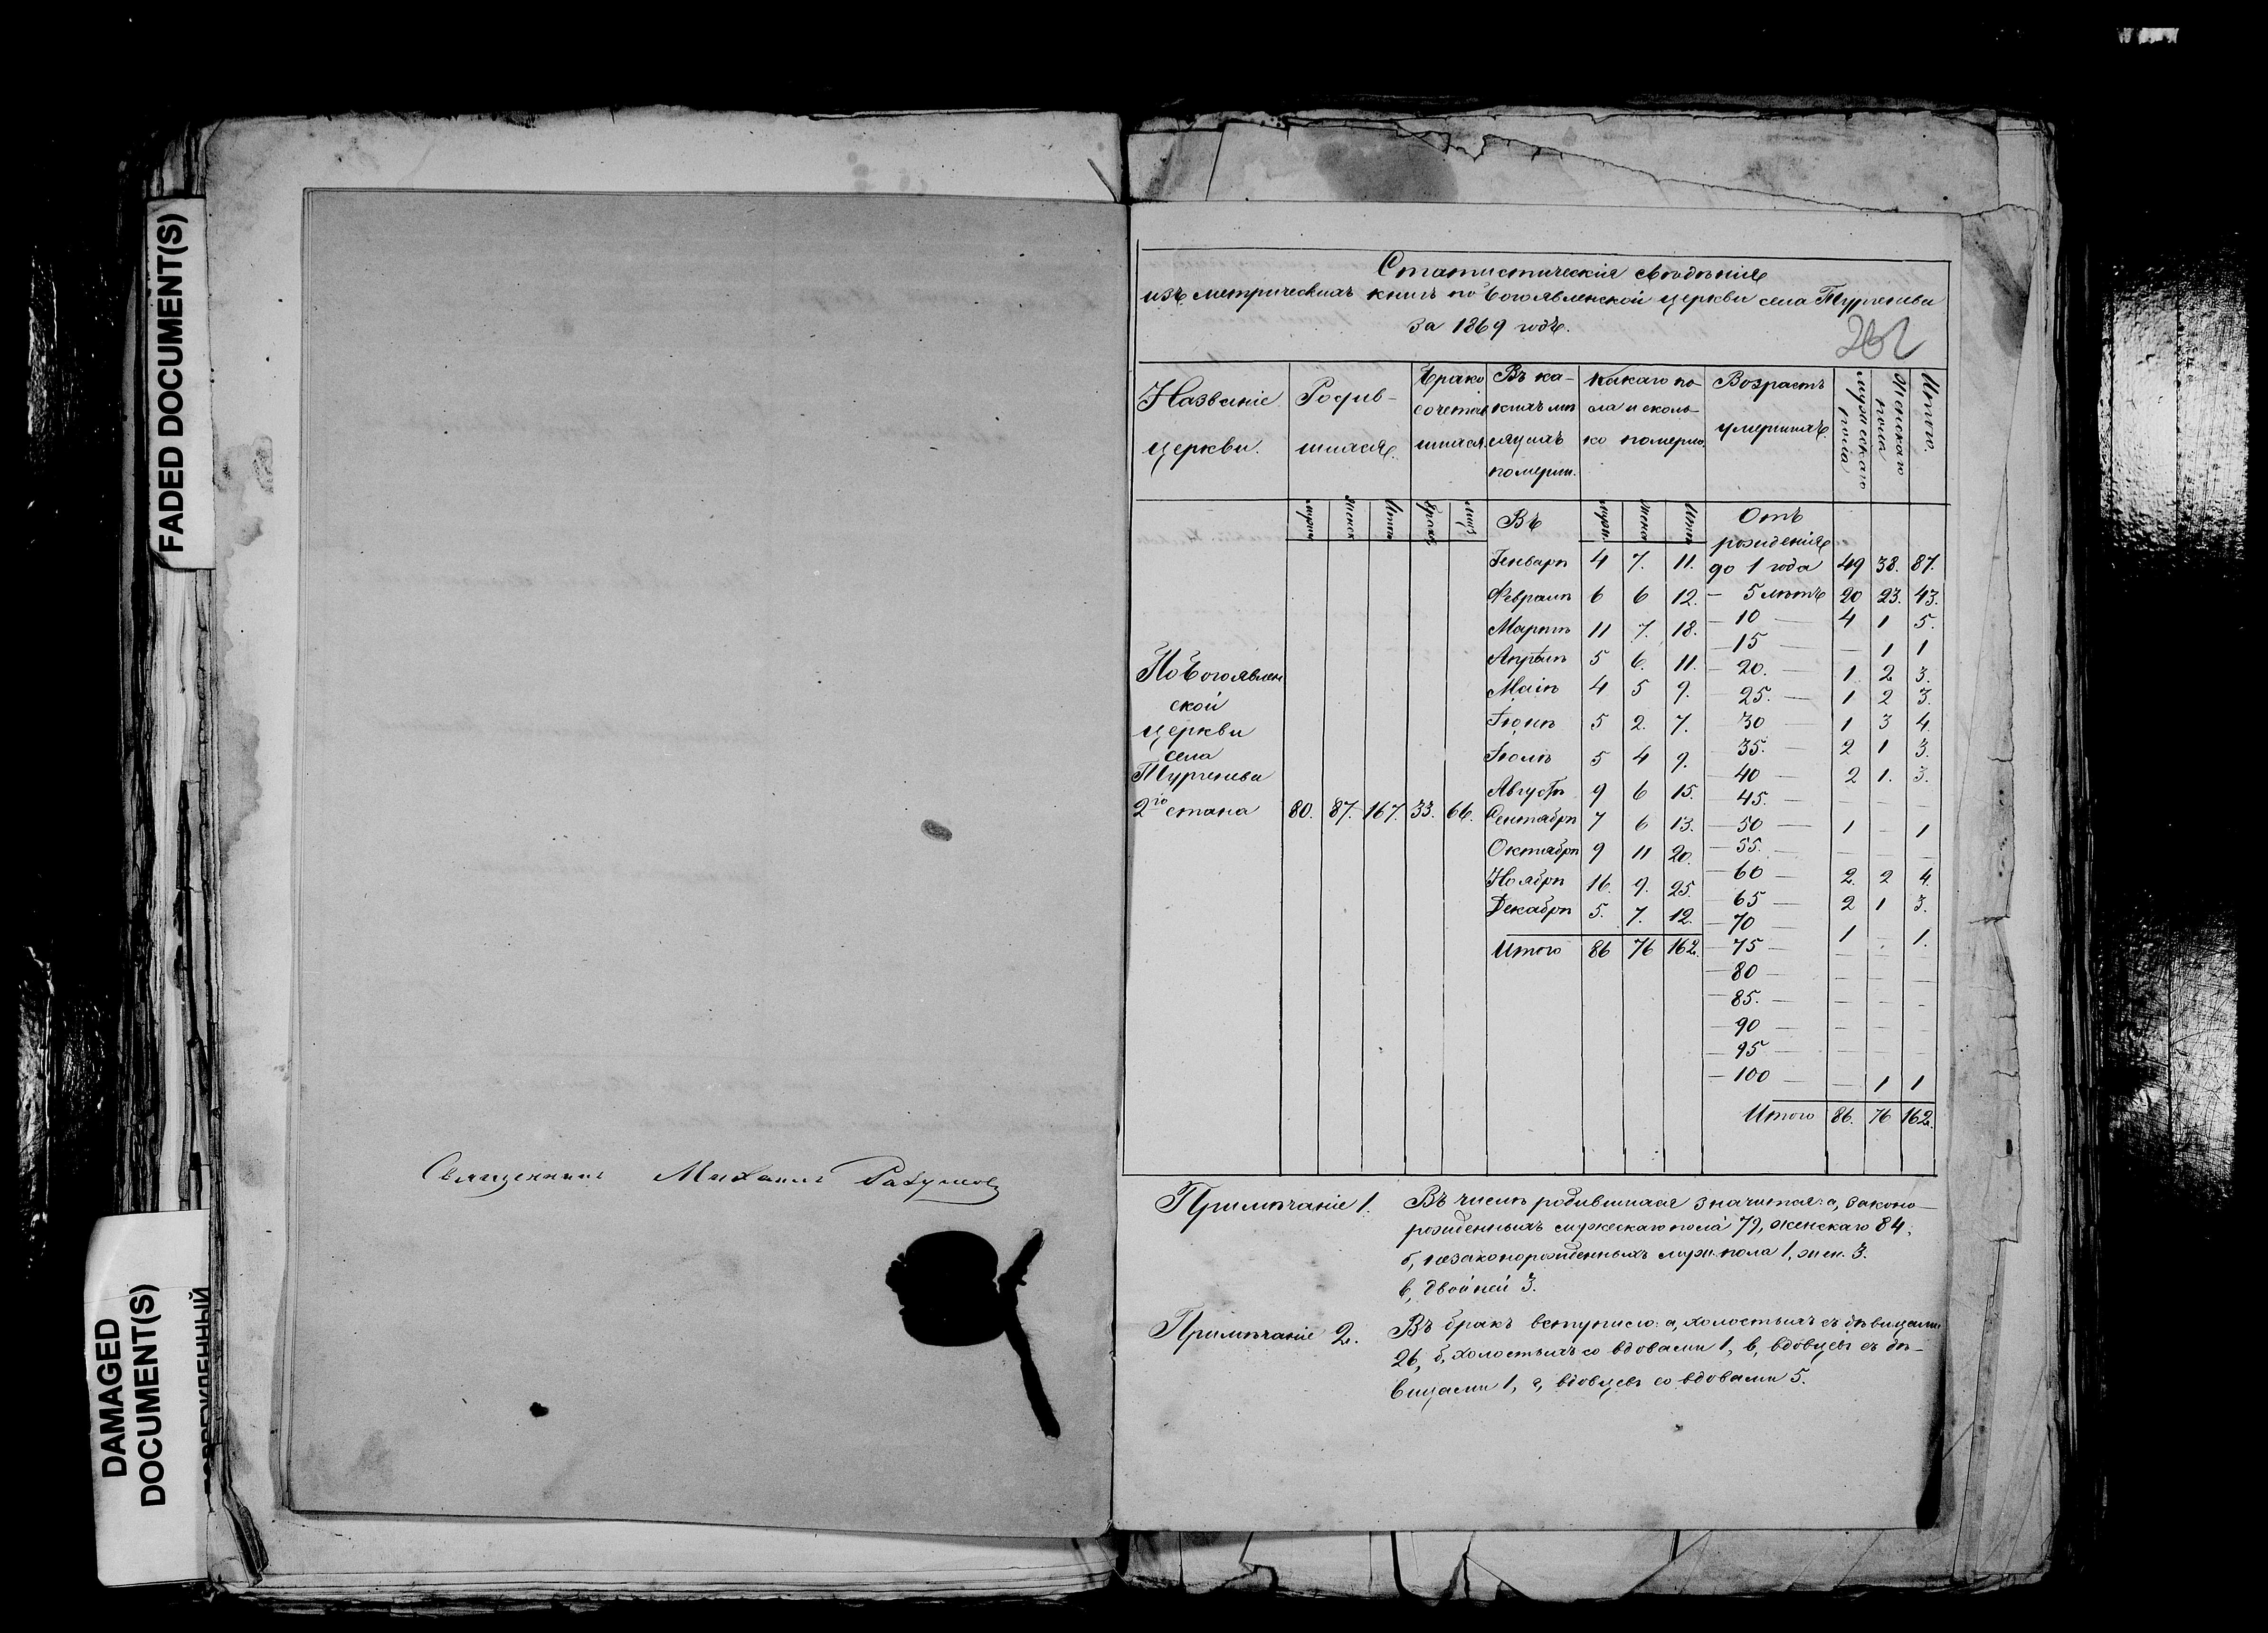 FADED DOCUMENT(S)
DAMAGED
DOCUMENT(S)
Священникъ Михаилъ
Статистическія свѣдѣнія
изъ метрическихъ книгъ по Богоявленской церкви села Тургенева
за 1869 годъ.
Названіе церкви. Родившихся. Бракосочетавшихся. Въ какихъ мѣсяцахъ померли. Какаго пола и сколько померло. Возрастъ умершихъ. Мужескаго пола Женскаго пола Итого.
Въ Отъ рожденія
Генварѣ 4 7. 11. до 1 года 49 38. 87.
Февралѣ 6 6 12. — 5 лѣтъ 20 23. 43.
Мартѣ 11 7. 18. — 10 — 4 1 5.
— 15 — — 1 1
Апрѣлѣ 5 6. 11. — 20. — 1 2 3.
Маіѣ 4 5 9. — 25. — 1 2 3.
Іюнѣ 5 2. 7. — 30 — 1 3 4.
Іюлѣ 5 4 9. — 35. — 2 1 3.
— 40 — 2 1. 3.
Августѣ 9 6 15. — 45. — — — —
По Богоявленской
церкви
села
Тургенева
2го стана 80. 87. 167. 33. 66.
Сентябрѣ 7 6 13. — 50 — 1 — 1
Октябрѣ 9 11 20. — 55. — — — —
Ноябрѣ 16. 9. 25. — 60 — 2. 2 4.
Декабрѣ 5. 7. 12. — 65 — 2 1 3.
— 70 — 1 — 1.
Итого 86 76 162. — 75 — — — —
— 80 — — — —
— 85. — — — —
— 90 — — — —
— 95 — — — —
— 100 — — 1 1
Итого 86. 76 162.
Примѣчаніе 1. Въ числѣ родившихся значится: а, законо-
рожденныхъ мужескаго пола 79, женскаго 84;
б, незаконорожденныхъ муж. пола 1, жен. 3.
в, двойней 3.
Примѣчаніе 2. Въ бракъ вступило: а, холостыхъ съ дѣвицами
26, б, холостыхъ со вдовами 1, в, вдовцевъ съ дѣ-
вицами 1, г, вдовцевъ со вдовами 5.